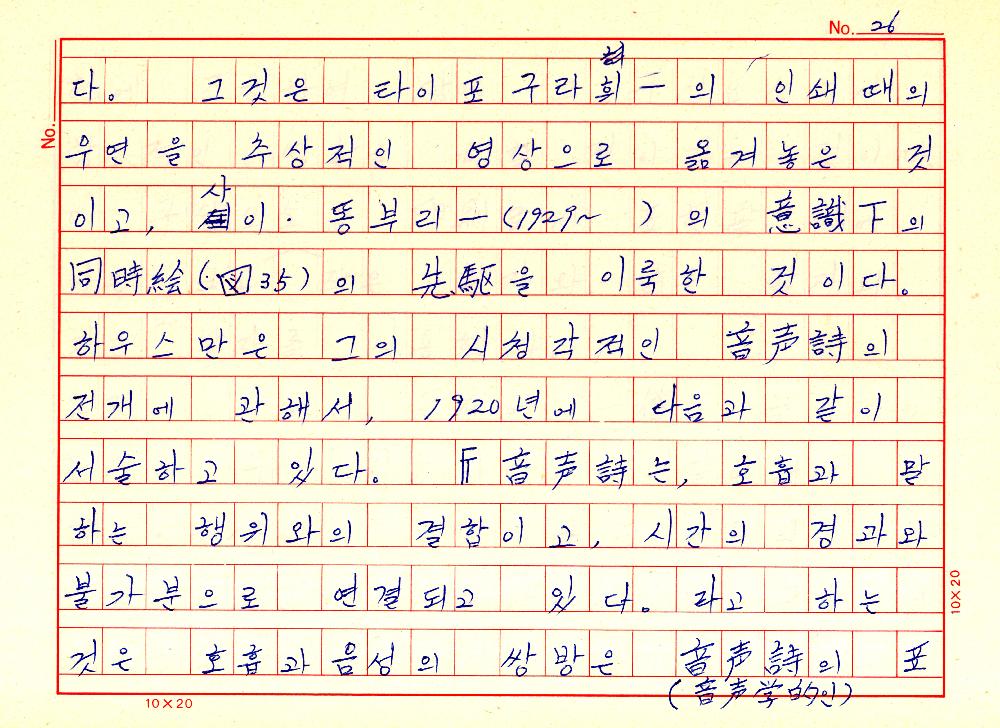 No. 26
다。 그것은 타이포구라휘ー의 인쇄때의
No.
우연을 추상적인 영상으로 옮겨놓은 것
이고, 사이·똥부리ー(1929~ )의 意識下의
同時絵(図35)의 先駆을 이룩한 것이다。
하우스만은 그의 시청각적인 音声詩의
전개에 관해서, 1920년에 다음과 같이
서술하고 있다。 『音声詩는, 호흡과 말
하는 행위와의 결합이고, 시간의 경과와
불가분으로 연결되고 있다。라고 하는
것은 호흡과 음성의 쌍방은 音声詩의 표
(音声学的인)
10×20
10×20